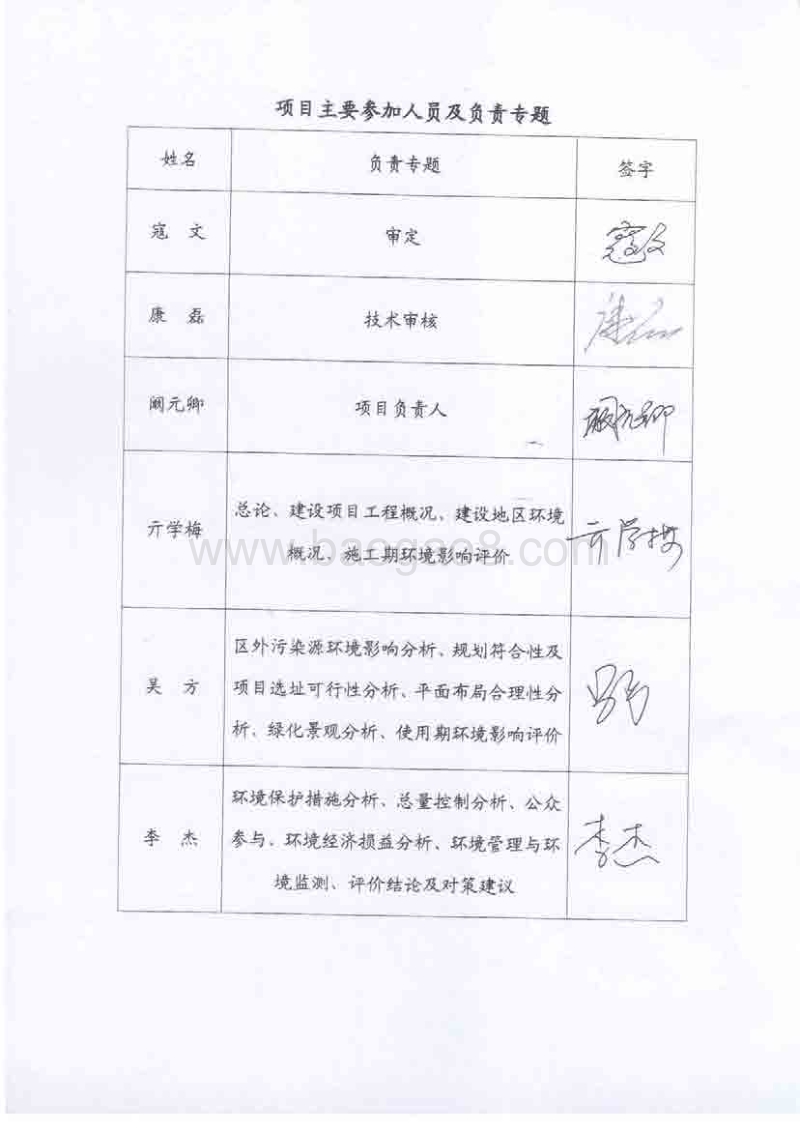 项目主要参加人员及负责专题
姓名 负责专题 签字
寇 文 审定 寇文
康 磊 技术审核 康磊
阚元卿 项目负责人 阚元卿
亓学梅 总论、建设项目工程概况、建设地区环境
概况、施工期环境影响评价 亓学梅
www.baogao8.com
吴 方 区外污染源环境影响分析、规划符合性及
项目选址可行性分析、平面布局合理性分
析、绿化景观分析、使用期环境影响评价
李 杰 环境保护措施分析、总量控制分析、公众
参与、环境经济损益分析、环境管理与环
境监测、评价结论及对策建议 李杰